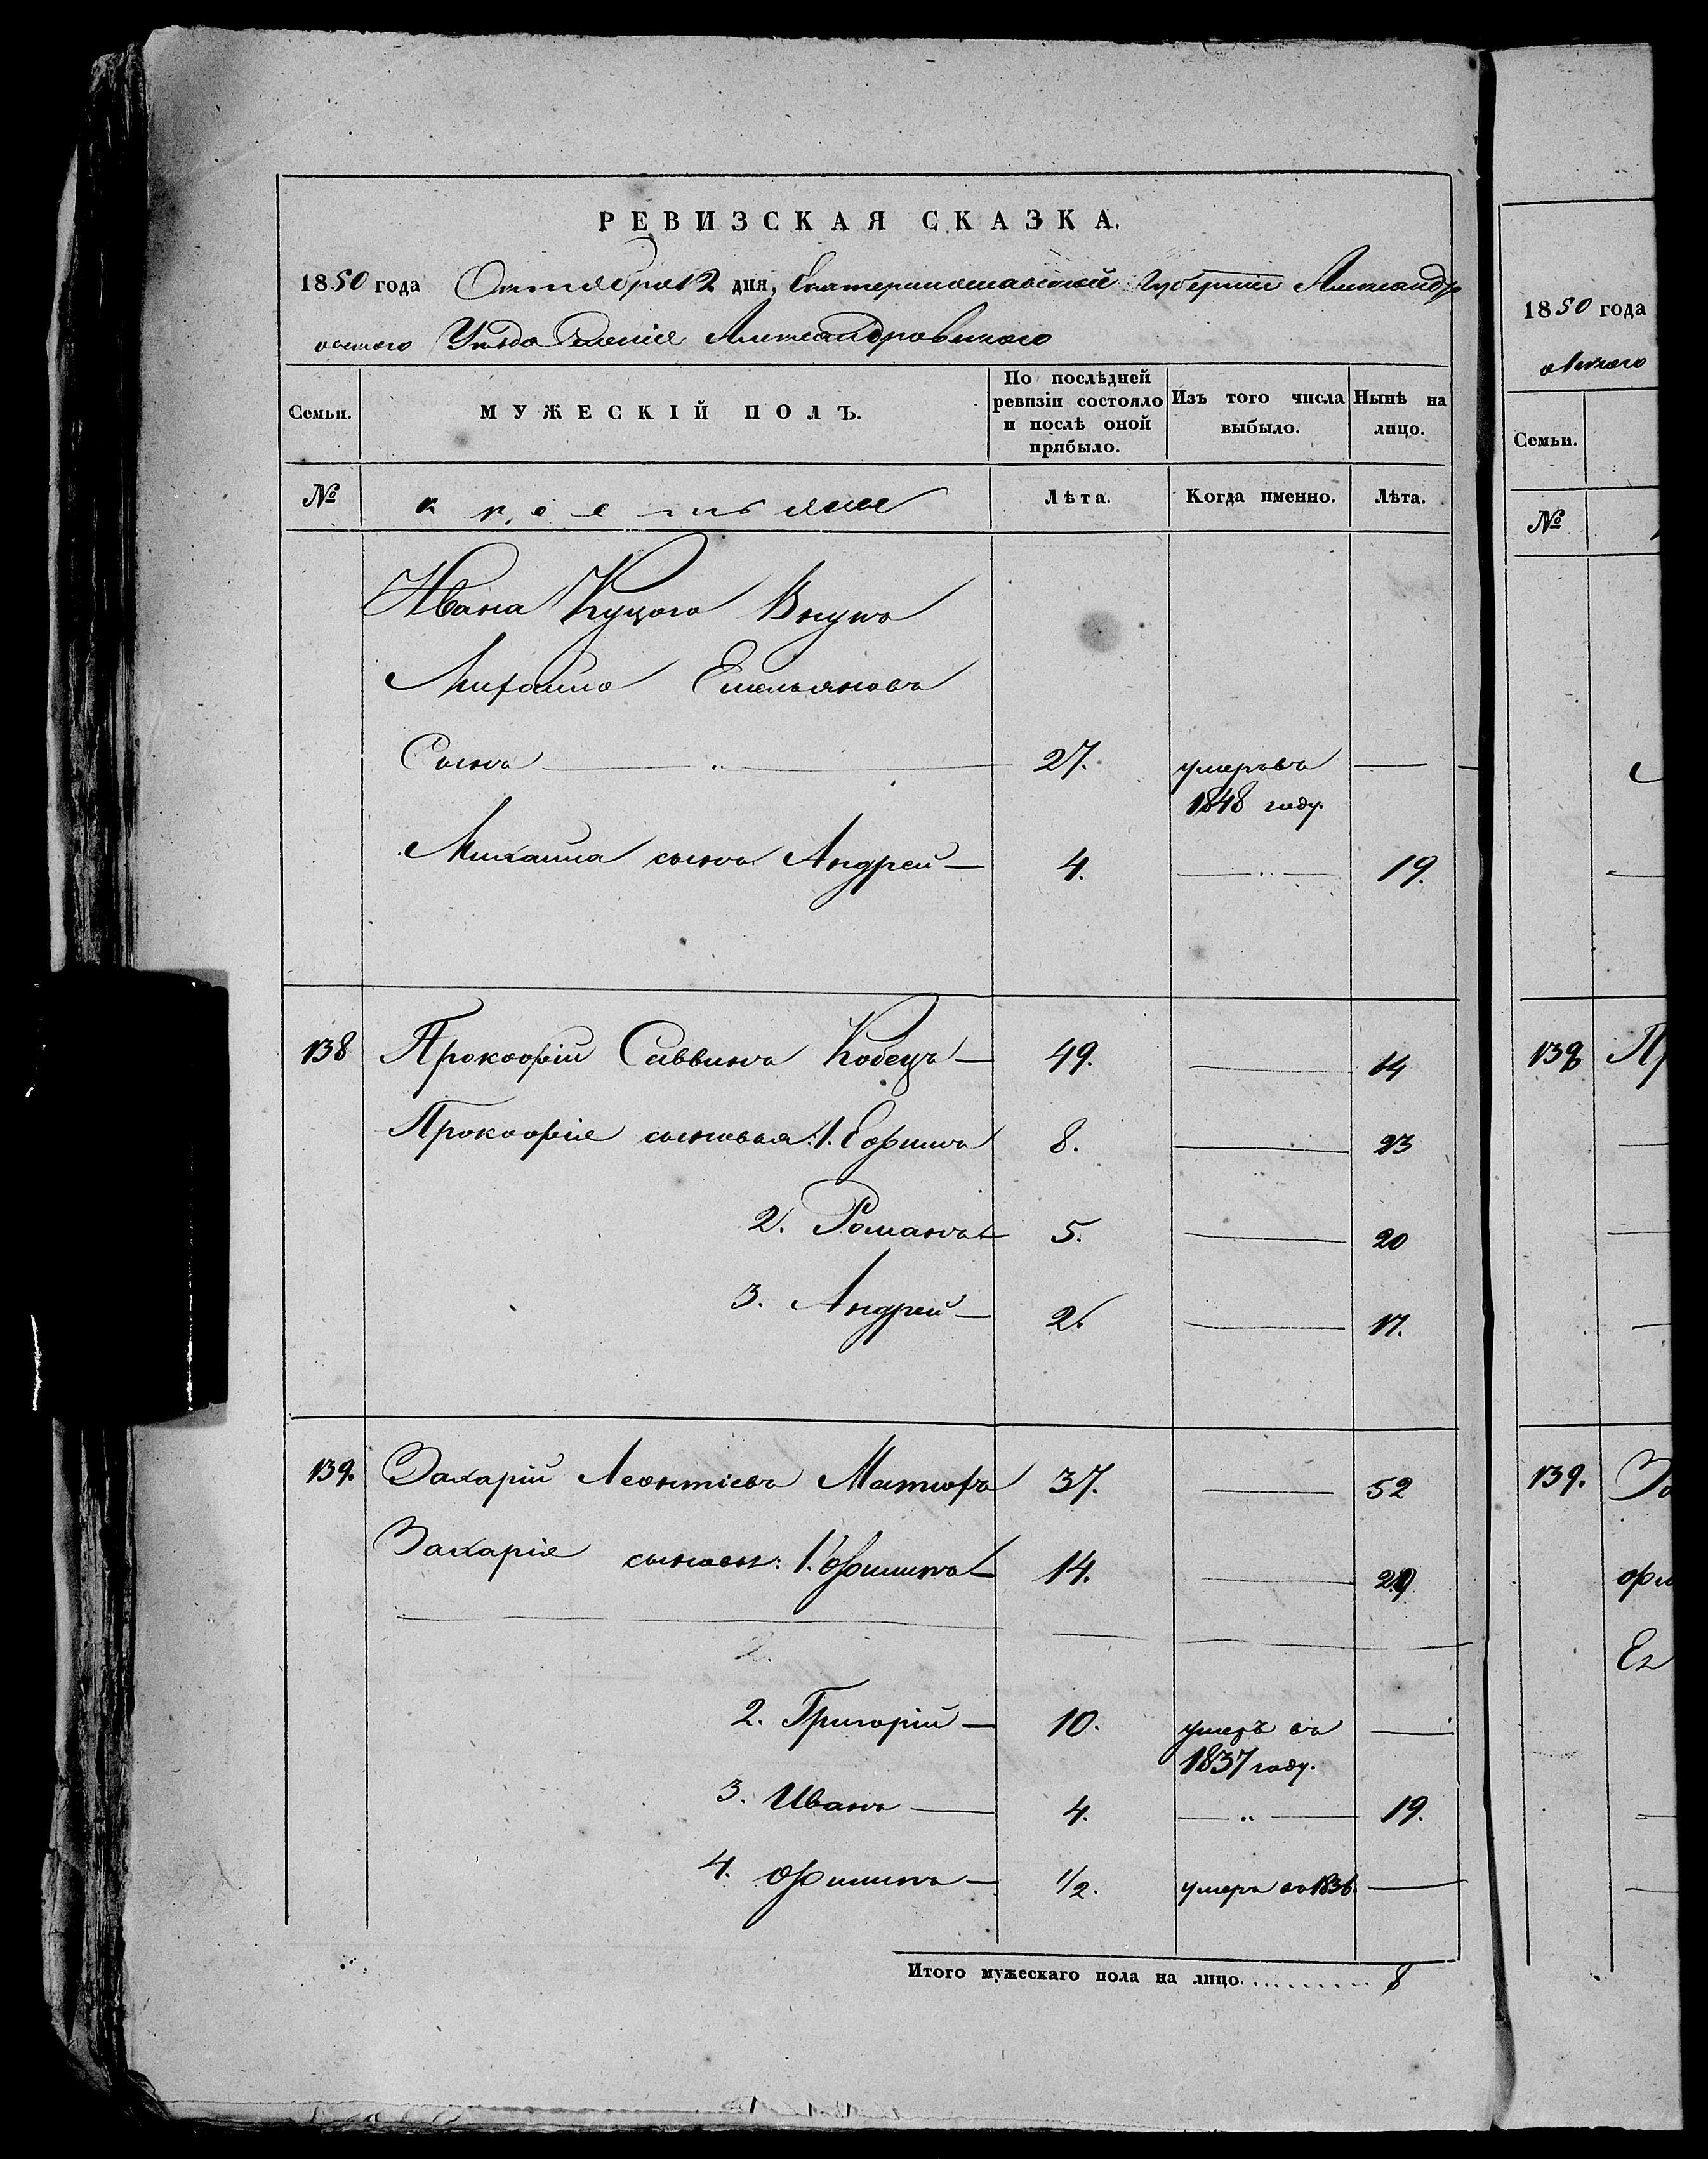 РЕВИЗСКАЯ СКАЗКА.
1850 года Октября 12 дня, Екатеринославской Губернии Александр
овского Уезда Селенія Александровского
Семьи.
МУЖЕСКІЙ ПОЛЪ.
По послѣдней ревизіи состояло и послѣ оной прибыло.
Изъ того числа выбыло.
Нынѣ на лицо.
№
крестьяне
Лѣта.
Когда именно.
Лѣта.
Ивана Куцого Внукъ
Михайло Емельяновъ
Сынъ 27. умеръ въ 1848 году.
Михаила сынъ Андрей 4. 19.
138 Прокофій Саввинъ Кобецъ 49. 64
Прокофія сыновья: 1. Ефимъ 8. 23
2. Романъ 5. 20
3. Андрей 2. 17.
139. Захарій Леонтіевъ 37. 52
Захарія сыновья: 1. Филипъ 14. 29
2.
2. Григорій 10. умеръ въ 1837 году.
3. Иванъ 4. 19.
4. Филипъ 1/2. умеръ въ 1836
Итого мужескаго пола на лицо. 8
1850 года
овского
Семьи.
№
138 Пр
139. За